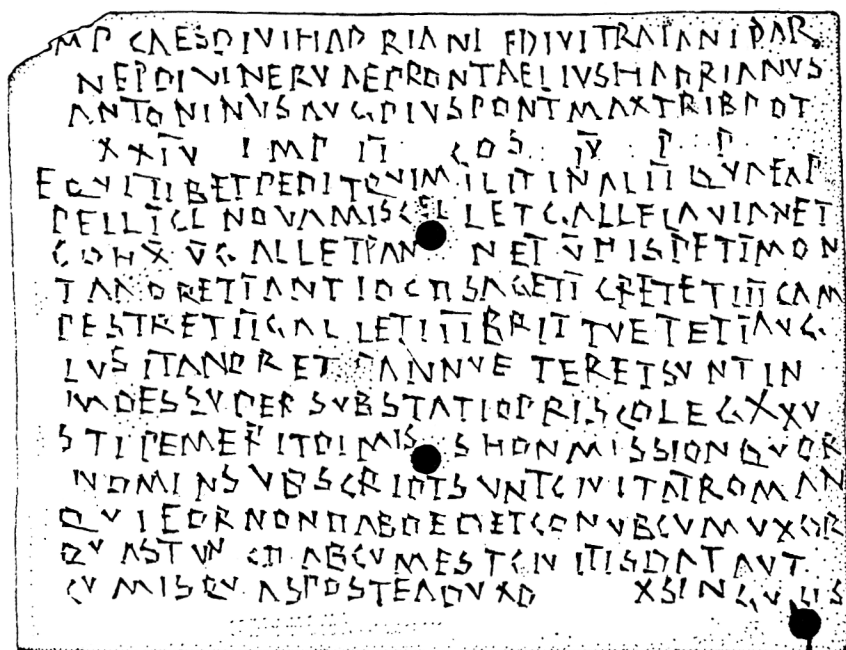 MP CAES DIVI HADRIANI F DIVI TRAIANI PAR
NEP DIVI NERVAE PRONT AELIVS HADRIANVS
ANTONINVS AVG PIVS PONT MAX TRIB POT
XXIV IMP II COS IV P P
EQVITIB ET PEDIT QVI MILIT IN AL III QVAE AP
PELL I CL NOVA MISCELL ET GALL FLAVIAN ET
COH X V GALL ET PANN ET V HISP ET I MON
TANOR ET I ANTIOCH SAG ET I CRET ET III CAM
PESTR ET II GALL ET III BRITT VET ET I AVG
LVSITANOR ET PANN VETER ET SVNT IN
MOES SVPER SVB STATIO PRISCO LEG XXV
STIP EMERIT DIMIS S HON MISSION QVOR
NOMIN SVBSCRIPT SVNT CIVITAT ROMAN
QVI EOR NON HAB DEDIT ET CONVB CVM VXOR
QVAS TVNC HAB CVM EST CIVIT IS DAT AVT
CVM IS QVAS POSTEA DVXO X SINGVLIS